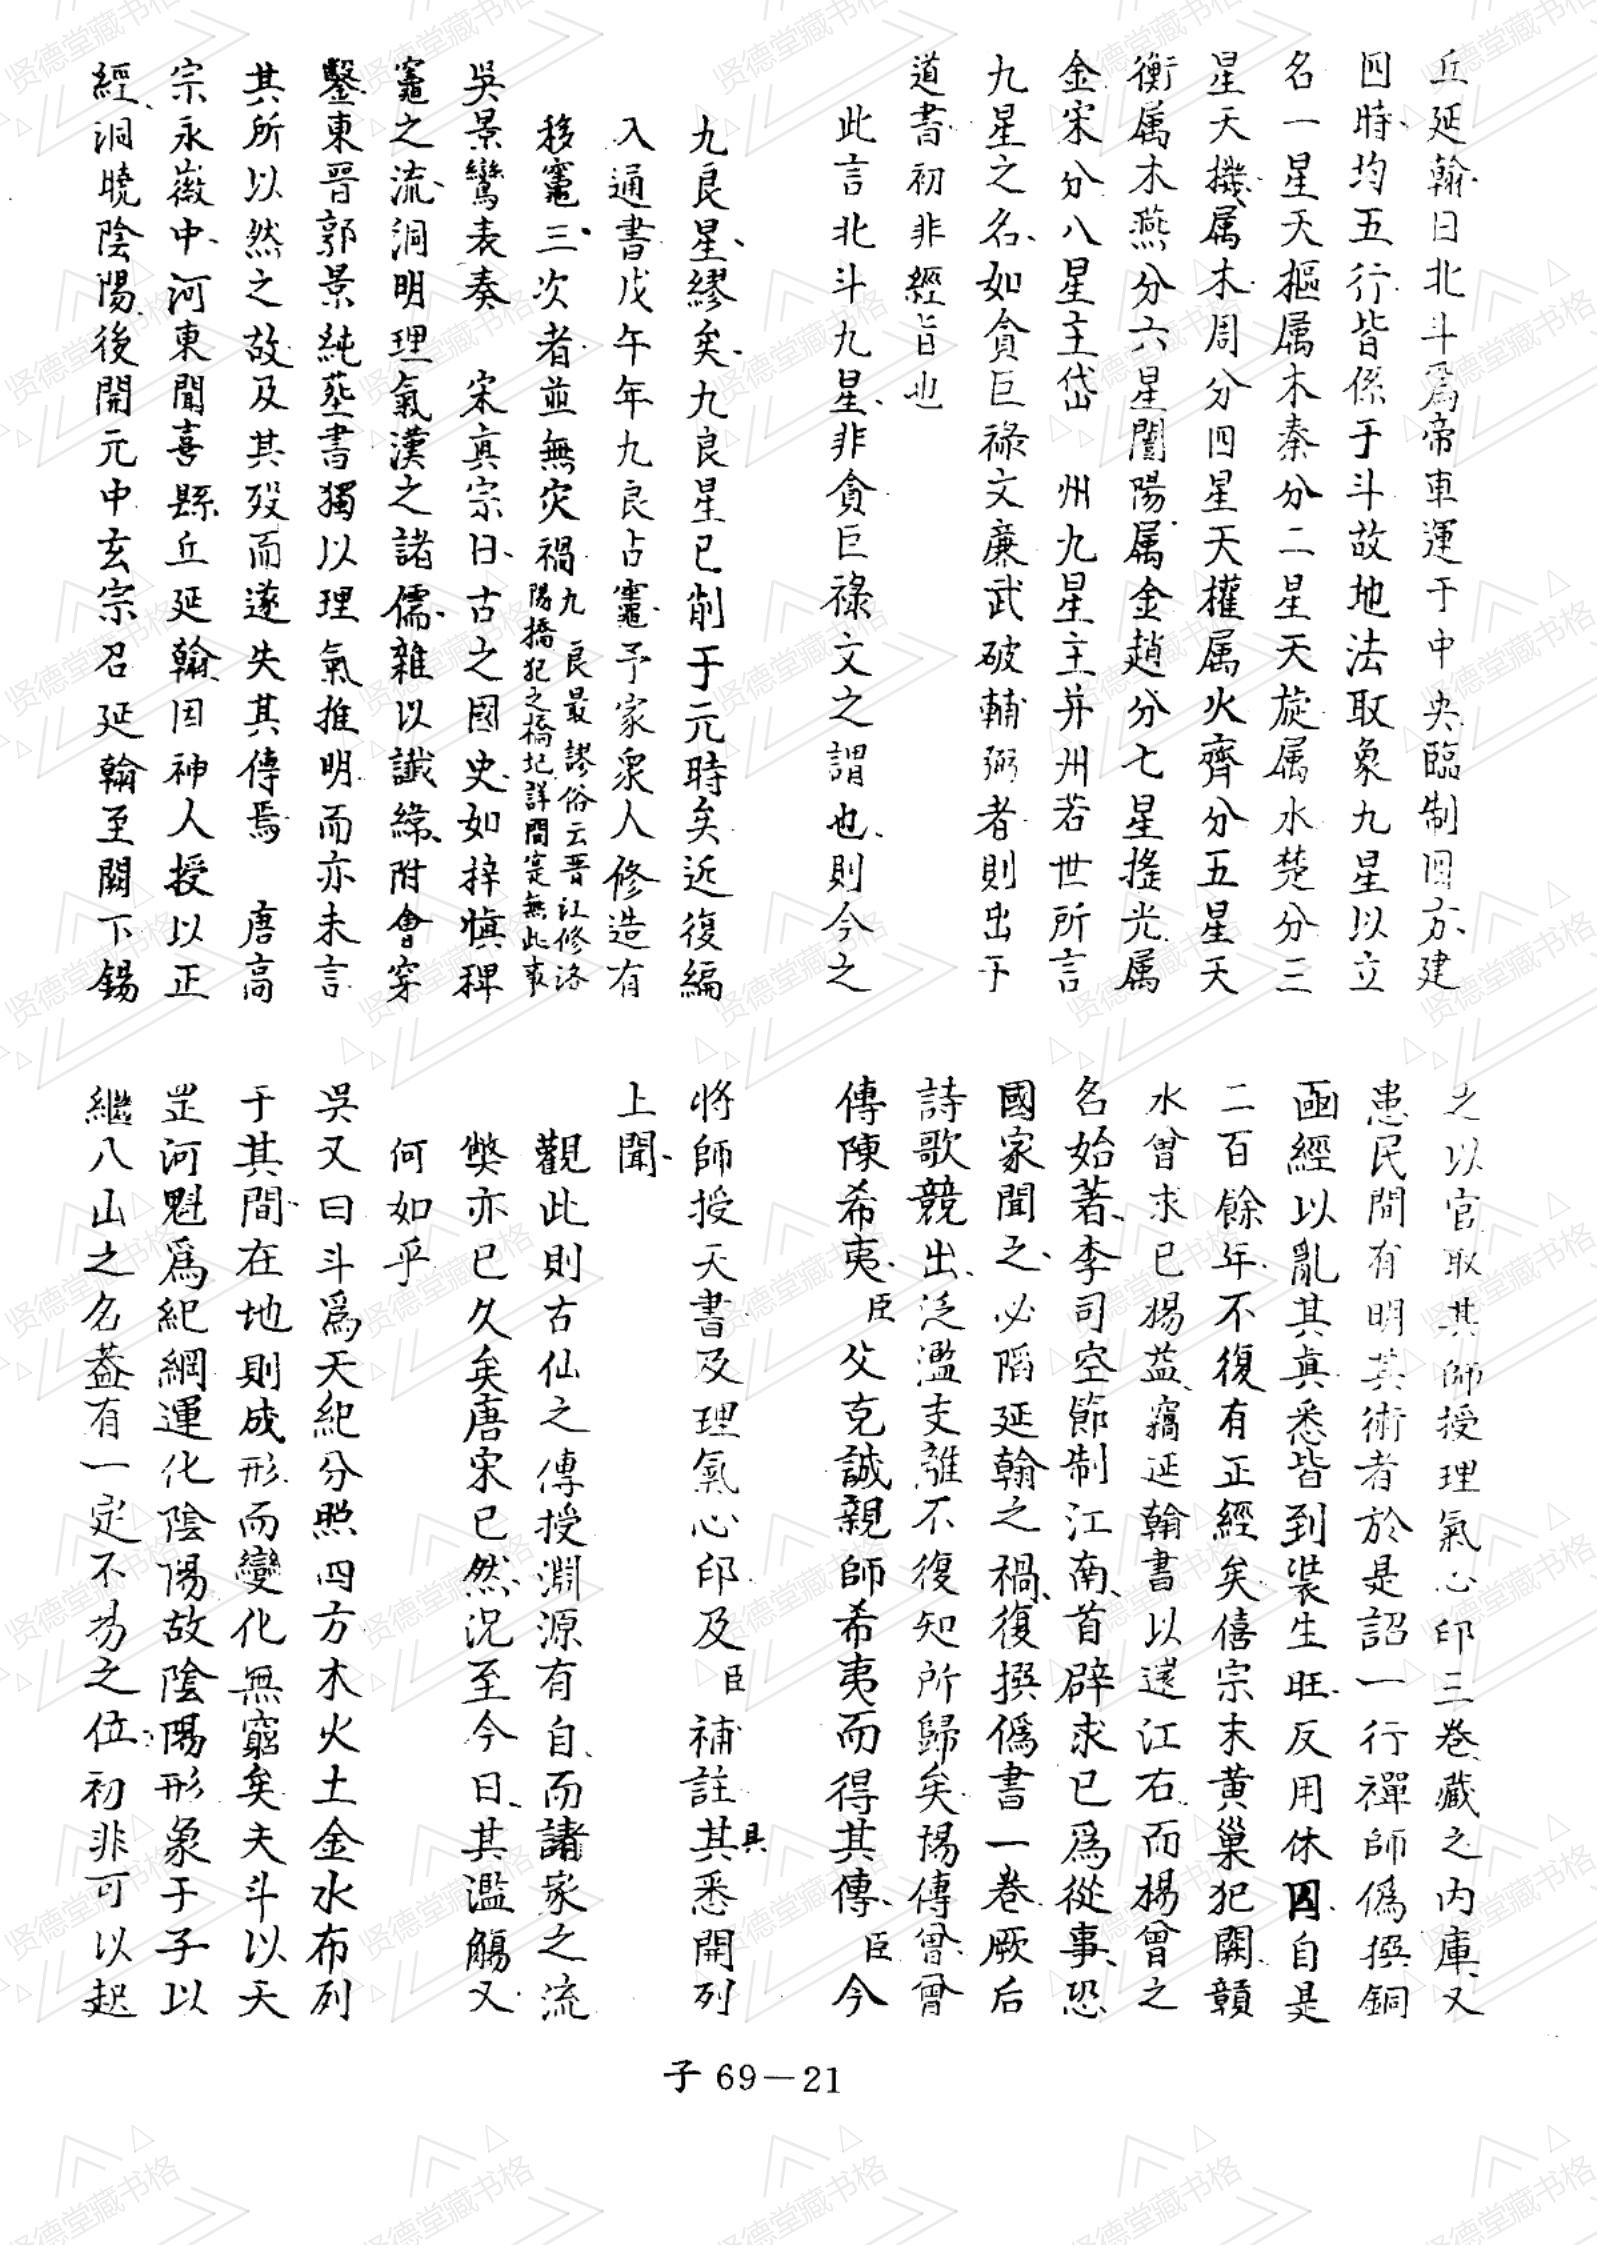 丘延翰曰北斗爲帝車運于中央臨制四方建
四時均五行皆係于斗故地法取象九星以立
名一星天樞属木秦分二星天旋属水楚分三
星天機属木周分四星天權属火齊分五星天
衡属木燕分六星闓陽属金趙分七星搖光属
金宋分八星主岱 州九星主并州若世所言
九星之名如貪巨祿文廉武破輔弼者則出于
道書初非經旨也
此言北斗九星非貪巨祿文之謂也則今之
九良星繆矣九良星已削于元時矣近復編
入通書戊午年九良占竈予家衆人修造有
移竈三次者並無灾禍九良最謬俗云晋江修洛
陽橋犯之橋圮詳閱寔無此事
吳景鸞表奏 宋真宗曰古之國史如梓慎稗
竈之流洞明理氣漢之諸儒雜以讖緯附會穿
鑿東晉郭景純葬書獨以理氣推明而亦未言
其所以然之故及其歿而遂失其傳焉 唐高
宗永徽中河東聞喜縣丘延翰因神人授以正
經洞曉陰陽後開元中玄宗召延翰至闕下錫
之以官取其師授理氣心印三卷藏之内庫又
患民間有明其術者於是詔一行禪師僞撰銅
凾經以亂其真悉皆到裝生旺反用休囚自是
二百餘年不復有正經矣僖宗末黄巢犯闕贛
水曾求已楊益竊延翰書以遂江右而楊曾之
名始著李司空節制江南首辟求已爲從事恐
國家聞之必蹈延翰之禍復撰僞書一卷厥后
詩歌競出泛濫支離不復知所歸矣楊傳曾曾
傳陳希夷臣父克誠親師希夷而得其傳臣今
將師授天書及理氣心印及臣補註其具悉開列
上聞
觀此則古仙之傳授淵源有自而諸家之流
獘亦已久矣唐宋已然况至今日其濫觴又
何如乎
吳又曰斗爲天紀分照四方木火土金水布列
于其間在地則成形而變化無窮矣夫斗以天
罡河魁爲紀綱運化陰陽故陰陽形象于子以
繼八山之名葢有一定不易之位初非可以起
子 69—21